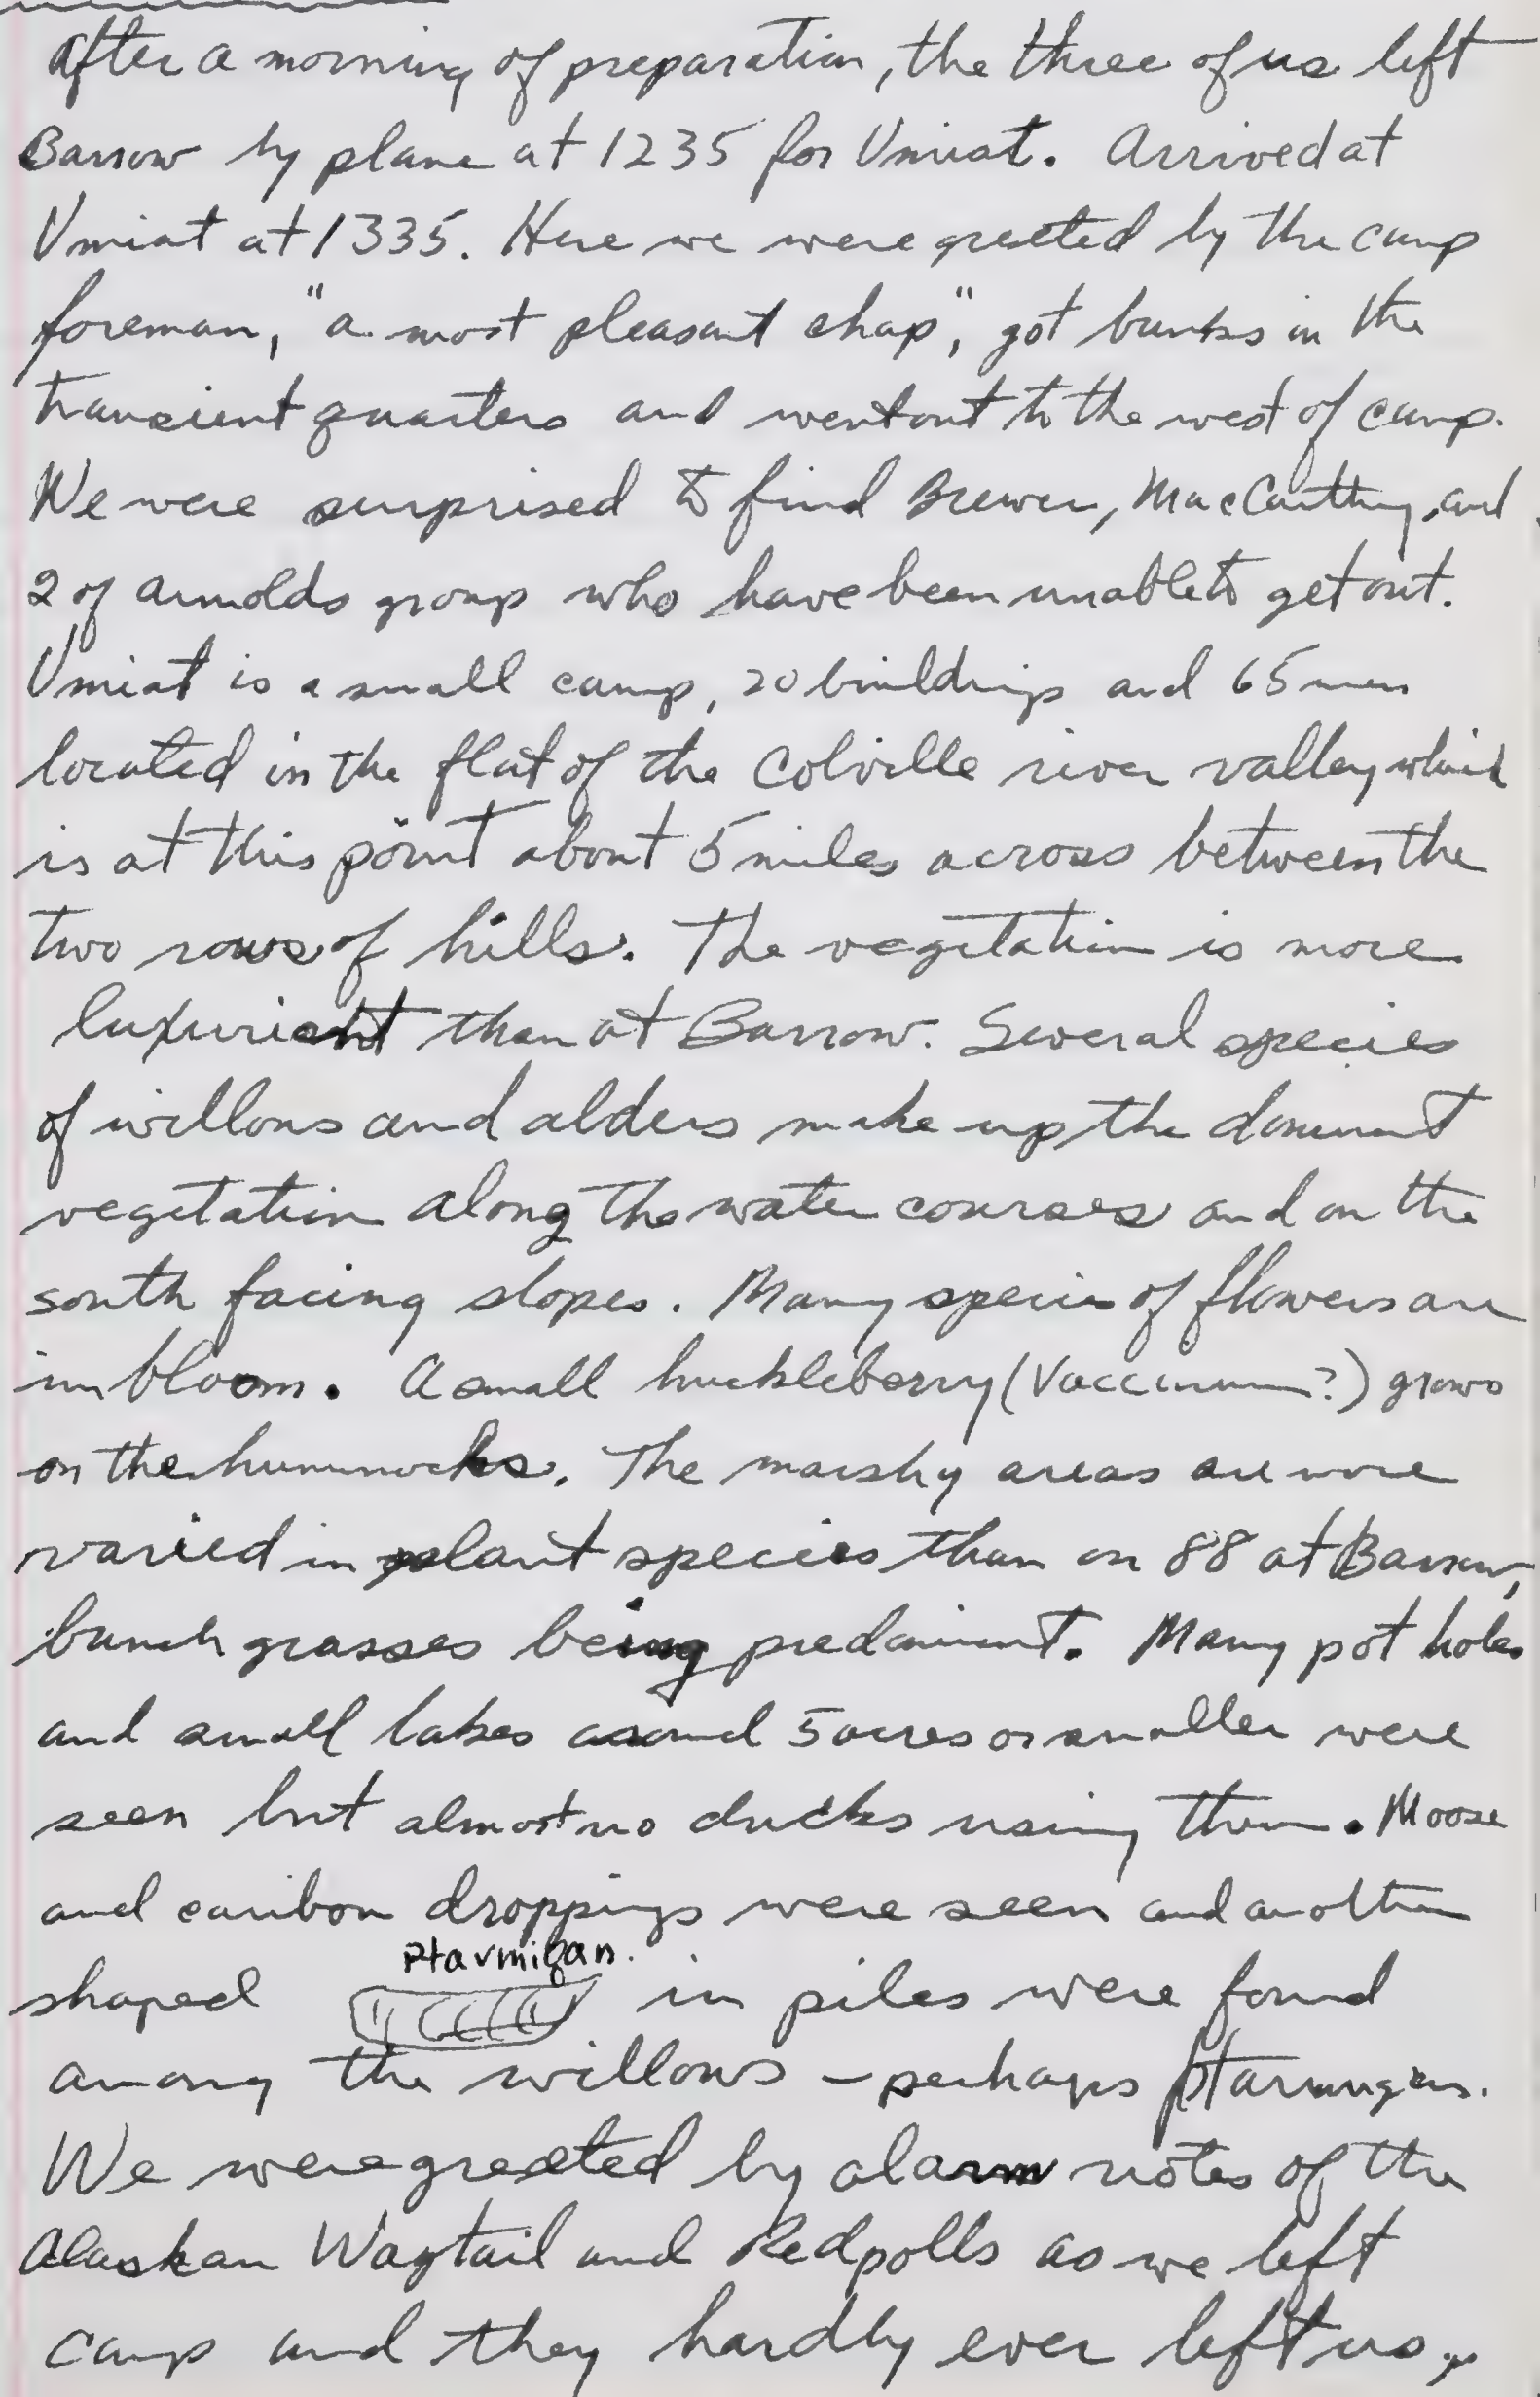 After a morning of preparation, the three of us left
Barrow by plane at 1235 for Umiat. Arrived at
Umiat at 1335. Here we were greeted by the camp
foreman, "a most pleasant chap", got bunks in the
transient quarters and went out to the west of camp.
We were surprised to find Brewer, MacCarthy, and
2 of Arnolds group who have been unable to get out.
Umiat is a small camp, 20 buildings and 65 men
located in the flat of the Colville river valley which
is at this point about 5 miles across between the
two rows of hills. The vegetation is more
luxuriant than at Barrow. Several species
of willows and alders make up the dominant
vegetation along the water courses and on the
south facing slopes. Many species of flowers are
in bloom. A small huckleberry (Vaccinium?) grows
on the hummocks. The marshy areas are more
varied in plant species than on 88 at Barrow,
bunch grasses being predominant. Many pot holes
and small lakes around 5 acres or smaller were
seen but almost no ducks using them. Moose
and caribou droppings were seen and another
Ptarmigan.
shaped in piles were found
among the willows – perhaps ptarmigans.
We were greeted by alarm notes of the
Alaskan Wagtail and Redpolls as we left
camp and they hardly ever left us,